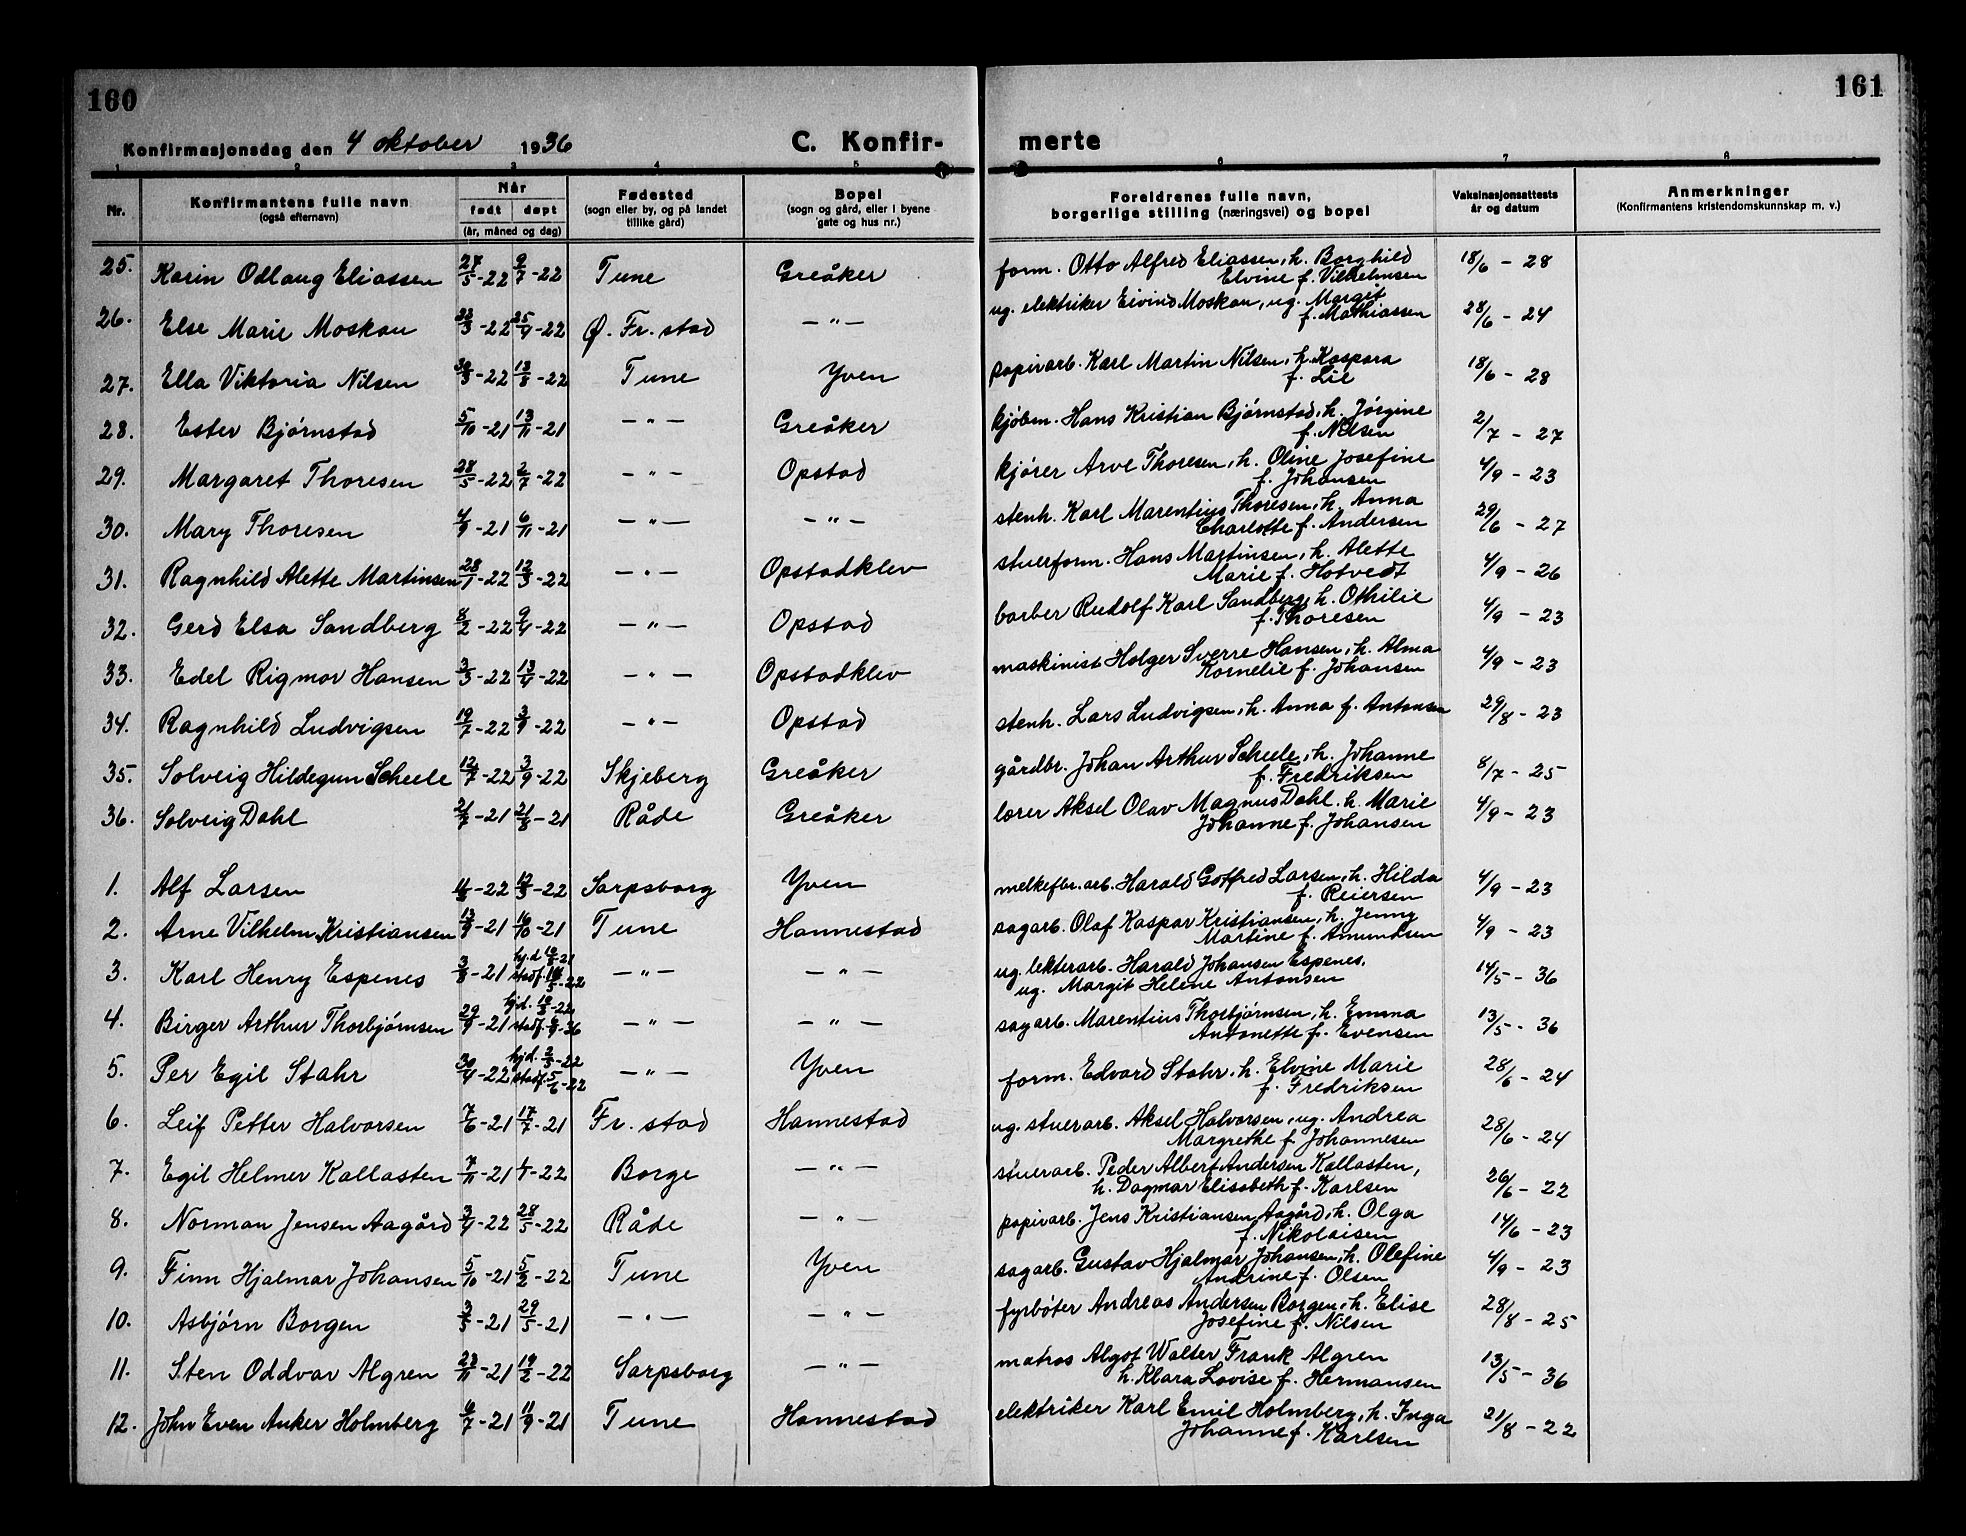 160
161
Konfirmasjonsdag den 4 oktober 1936
C. Konfir-
merte
1 2 3 4 5 6 7 8
Nr.
Konfirmantens fulle navn
(også efternavn)
Når
født døpt
(år, måned og dag)
Fødested
(sogn eller by, og på landet
tillike gård)
Bopel
(sogn og gård, eller i byene
gate og hus nr.)
Foreldrenes fulle navn,
borgerlige stilling (næringsvei) og bopel
Vaksinasjonsattests
år og datum
Anmerkninger
(Konfirmantens kristendomskunnskap m. v.)
25. Karin Odlaug Eliassen 27/5-22 9/7-22 Tune Greåker form. Otto Alfred Eliassen, h. Borghild
Elvine f. Vilhelmsen 18/6 - 28
26. Else Marie Moskau 22/3-22 25/4-22 Ø. Fr. stad -"- ug. elektriker Eivind Moskau, ug. Margit
f. Mathiassen 28/6 - 24
27. Ella Viktoria Nilsen 30/3-22 13/8-22 Tune Yven papirarb. Karl Martin Nilsen, h. Kaspara
f. Lie 18/6 - 28
28. Ester Bjørnstad 5/10-21 13/11-21 -"- Greåker kjøbm. Hans Kristian Bjørnstad, h. Jørgine
f. Nilsen 2/7 - 27
29. Margaret Thoresen 28/5-22 2/7-22 -"- Opstad kjører Arve Thoresen, h. Oline Josefine
f. Johansen 4/9 - 23
30. Mary Thoresen 4/9-21 6/11-21 -"- -"- stenh. Karl Marentius Thoresen, h. Anna
Charlotte f. Andersen 29/6 - 27
31. Ragnhild Alette Martinsen 28/1-22 12/3-22 -"- Opstadklev stuerform. Hans Martinsen, h. Alette
Marie f. Hotvedt 4/9 - 26
32. Gerd Elsa Sandberg 8/2-22 9/4-22 -"- Opstad barber Rudolf Karl Sandberg, h. Othilie
f. Thoresen 4/9 - 23
33. Edel Rigmor Hansen 3/3-22 13/4-22 -"- Opstadklev maskinist Holger Sverre Hansen, h. Alma
Kornelie f. Johansen 4/9 - 23
34. Ragnhild Ludvigsen 19/7-22 3/9-22 -"- Opstad stenh. Lars Ludvigsen, h. Anna f. Antonsen 29/8 - 23
35. Solveig Hildegun Scheele 12/7-22 3/9-22 Skjeberg Greåker gårdbr. Johan Arthur Scheele, h. Johanne
f. Fredriksen 8/7 - 25
36. Solveig Dahl 2/7-21 21/8-21 Råde Greåker lærer Aksel Olav Magnus Dahl. h. Marie
Johanne f. Johansen 4/9 - 23
1. Alf Larsen -22 12/3-22 Sarpsborg Yven melkefbr.arb. Harald Gotfred Larsen, h. Hilda
f. Reiersen 4/9 - 23
2. Arne Vilhelm Kristiansen 13/9-21 16/10-21 Tune Hannestad sagarb. Olaf Kaspar Kristiansen, h. Jenny
Martine f. Amundsen 4/9 - 23
3. Karl Henry Espenes 3/8-21 hj.d -21
stadf. -22 -"- -"- ug. lekterarb. Harald Johansen Espenes,
ug. Margit Helene Antonsen 14/5 - 36
4. Birger Arthur Thorbjørnsen 29/9-21 hj.d. -22
stadf. -36 -"- -"- sagarb. Marentius Thorbjørnsen, h. Emma
Antonette f. Evensen 13/5 - 36
5. Per Egil Stahr 30/4-22 hj.d. -22
stadf. 5/6-22 -"- Yven form. Edvard Stahr, h. Elvine Marie
f. Fredriksen 28/6 - 24
6. Leif Petter Halvorsen 7/6-21 17/7-21 Fr. stad Hannestad ug. stuerarb. Aksel Halvorsen, ug. Andrea
Margrethe f. Johannesen 28/6 - 24
7. Egil Helmer Kallasten 7/11-21 1/1-22 Borge -"- stuerarb. Peder Albert Andersen Kallasten,
h. Dagmar Elisabeth f. Karlsen 26/6 - 22
8. Norman Jensen Aagård 3/4-22 28/5-22 Råde -"- papirarb. Jens Kristiansen Aagård, h. Olga
f. Nikolaisen 14/6 - 23
9. Finn Hjalmar Johansen 5/10-21 5/2-22 Tune Yven sagarb. Gustav Hjalmar Johansen, h. Olefine
Andrine f. Olsen 4/9 - 23
10. Asbjørn Borgen 3/3-21 29/5-21 -"- -"- fyrbøter Andreas Andersen Borgen, h. Elise
Josefine f. Nilsen 28/8 - 25
11. Sten Oddvar Algren 23/11-21 19/2-22 Sarpsborg -"- matros Algot Walter Frank Algren
h. Klara Lovise f. Hermansen 13/5 - 36
12. John Even Anker Holmberg 6/7-21 11/9-21 Tune Hannestad elektriker Karl Emil Holmberg, h. Inga
Johanne f. Karlsen 21/8 - 22